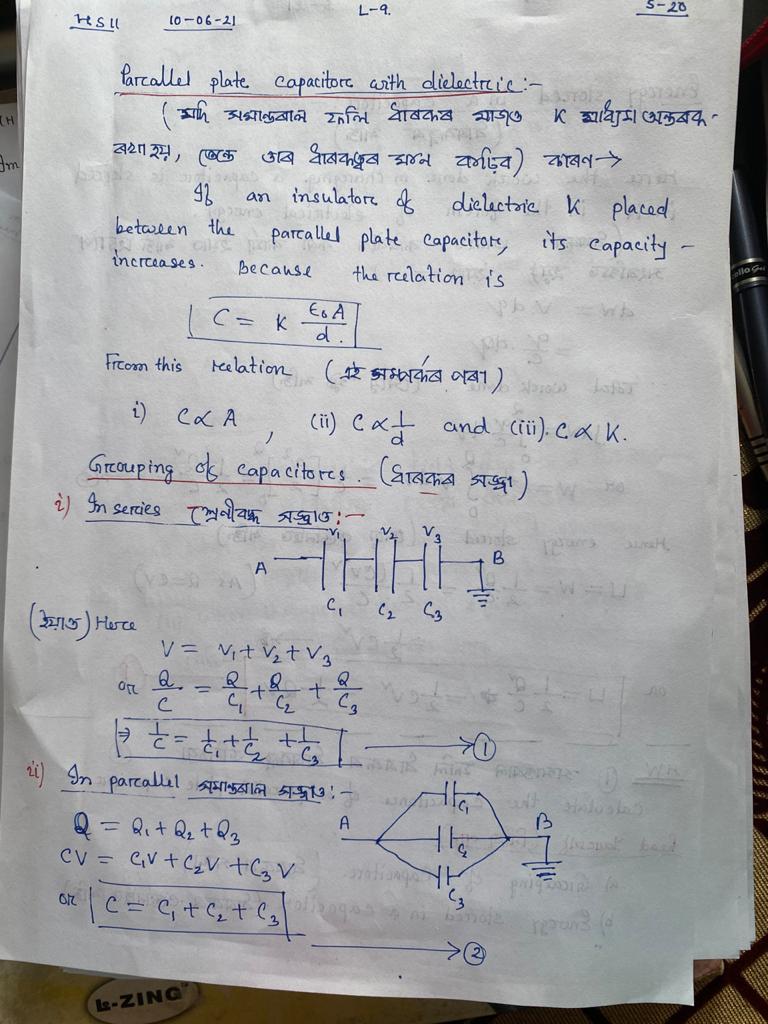 HS II 10-06-21 L-9. S-20
Parallel plate capacitor with dielectric:-
(যদি সমান্তৰাল ফলি ধাৰকৰ মাজত K মাধ্যম অন্তৰক-
ৰখা হয়, তেন্তে তাৰ ধাৰকত্বৰ মান বাঢ়িব) কাৰন→
If an insulator of dielectric K placed
between the parallel plate capacitor, its capacity -
increases. Because the relation is
C = K ε₀A/d.
From this relation (এই সম্পৰ্কৰ পৰা)
i) C ∝ A, (ii) C ∝ 1/d and (iii). C ∝ K.
Grouping of capacitors. (ধাৰকৰ সজ্জা)
i) In series শ্ৰেনীবদ্ধ সজ্জাত:-
V₁ V₂ V₃
A B
C₁ C₂ C₃
(ইয়াত) Here
V = V₁ + V₂ + V₃
or Q/C = Q/C₁ + Q/C₂ + Q/C₃
⇒ 1/C = 1/C₁ + 1/C₂ + 1/C₃ → ①
ii) In parallel সমান্তৰাল সজ্জাত:-
Q = Q₁ + Q₂ + Q₃
CV = C₁V + C₂V + C₃V
or C = C₁ + C₂ + C₃
→ ②
A B
C₁
C₂
C₃
L-ZING